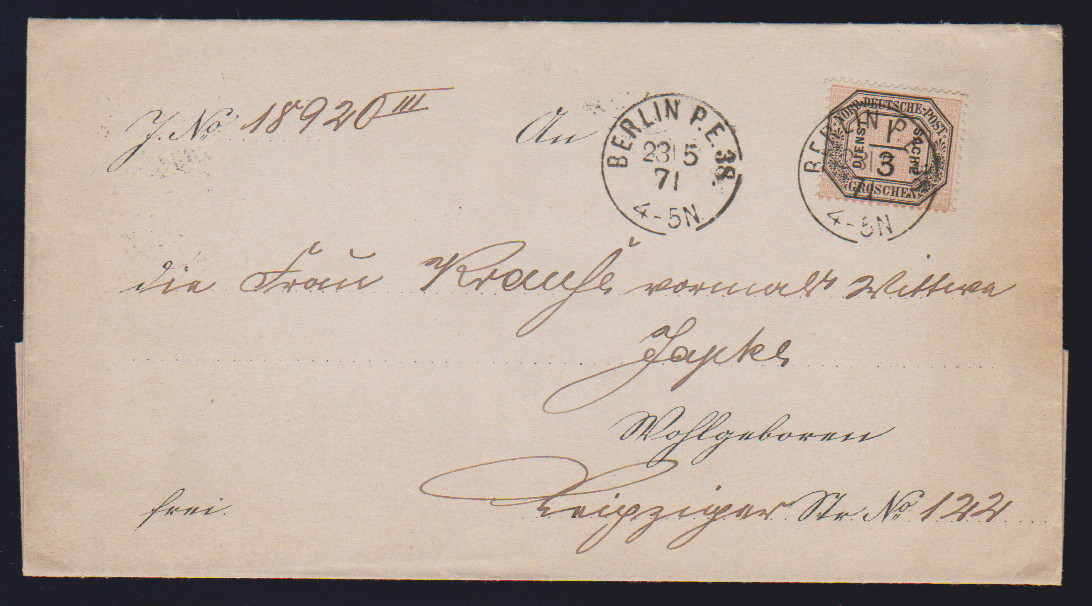 J. No. 18920 III An
BERLIN P.E. 38.
23 5
71
4-5N
NORD-DEUTSCHE-POST
DIENST SACHE
1
3
GROSCHEN
BERLIN P.
71
4-5N
die Frau Krause vormals Wittwe
Japke
Wohlgeboren
frei. Leipziger Str. No. 122